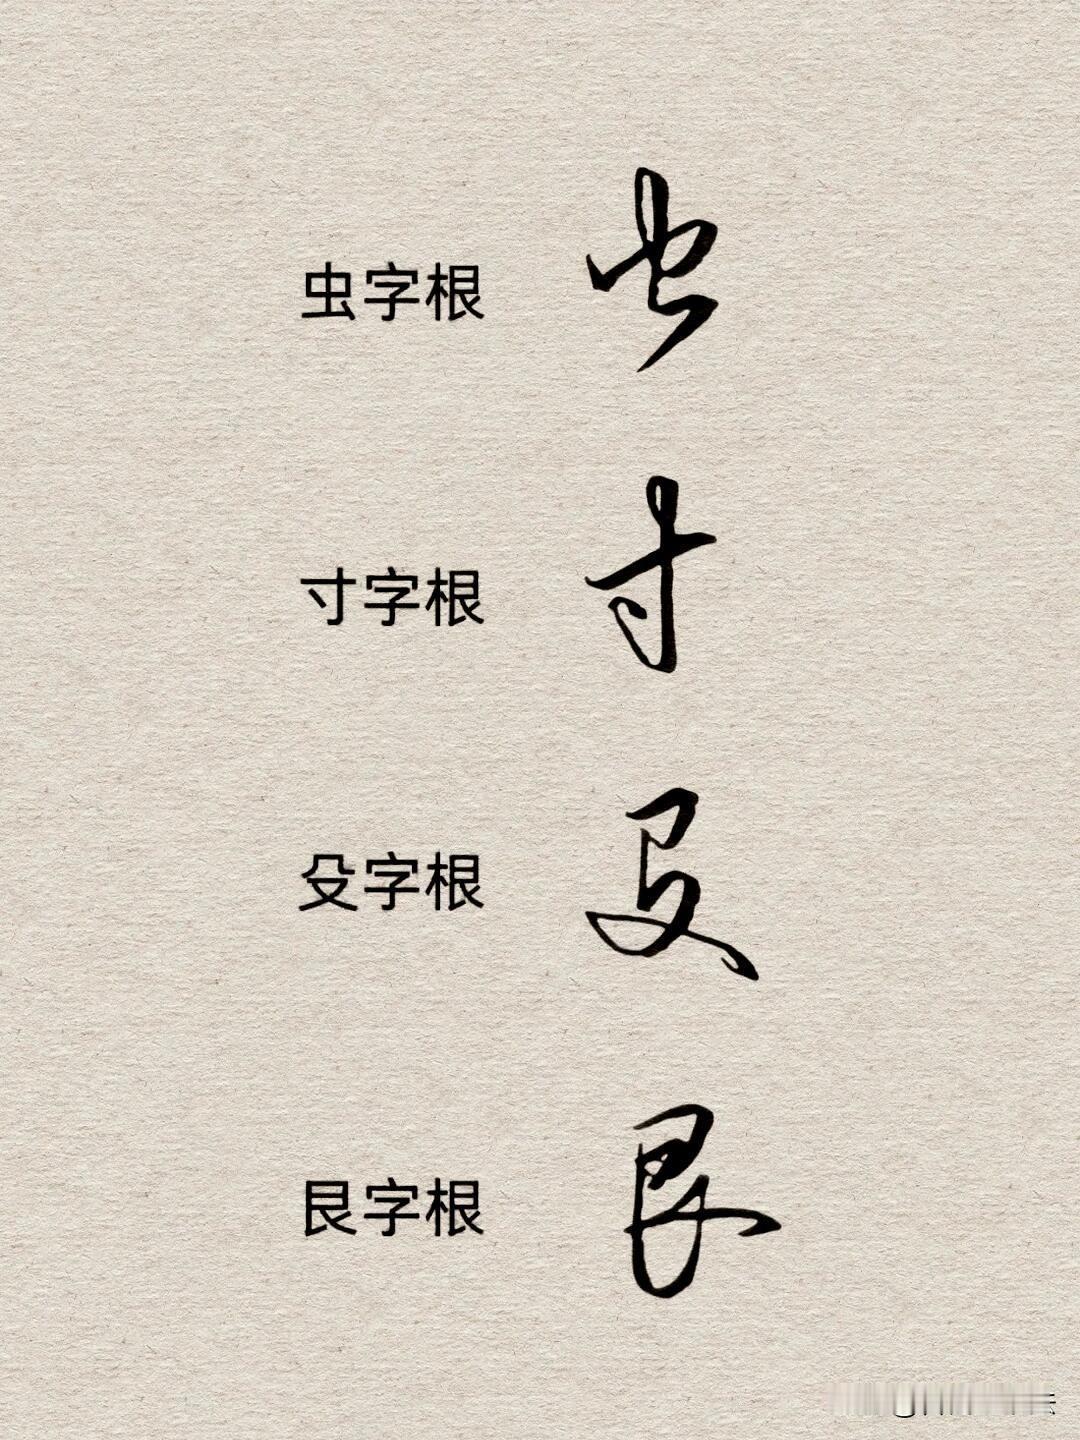 虫字根 虫
寸字根 寸
殳字根 殳
艮字根 艮